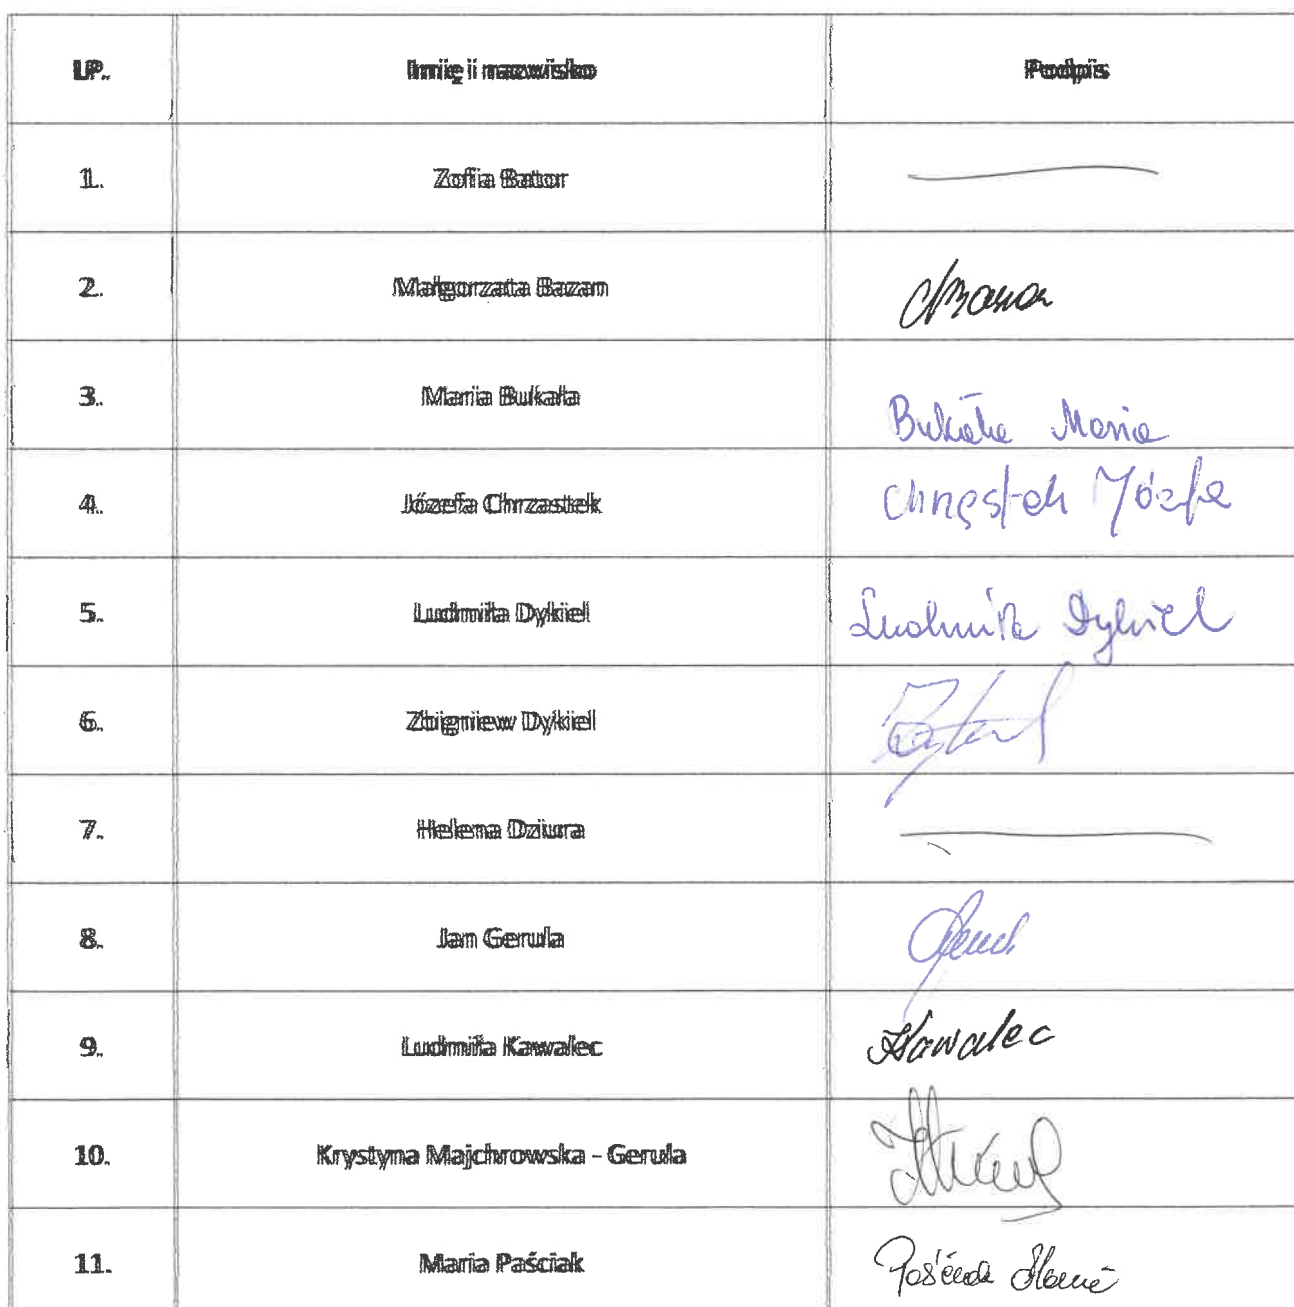 LP. Imię i nazwisko Podpis
1. Zofia Bator
2. Małgorzata Bazan
3. Maria Bukała Bukała Maria
4. Józefa Chrzastek Chrząstek Józefa
5. Ludmiła Dykiel Ludmiła Dykiel
6. Zbigniew Dykiel
7. Helena Dziura
8. Jan Gerula
9. Ludmiła Kawalec Kawalec
10. Krystyna Majchrowska - Gerula
11. Maria Paściak Paściak Maria